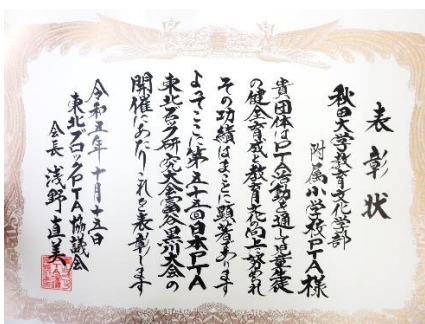 表彰状
秋田大学教育文化学部
附属小学校PTA様
貴団体はPTA活動を通して児童生徒
の健全育成と教育文化向上に努められ
その功績はまことに顕著であります
よってここに第五十五回日本PTA
東北ブロック研究大会富谷黒川大会の
開催にあたりこれを表彰します
令和五年十月十五日
東北ブロックPTA協議会
会長 浅野直美